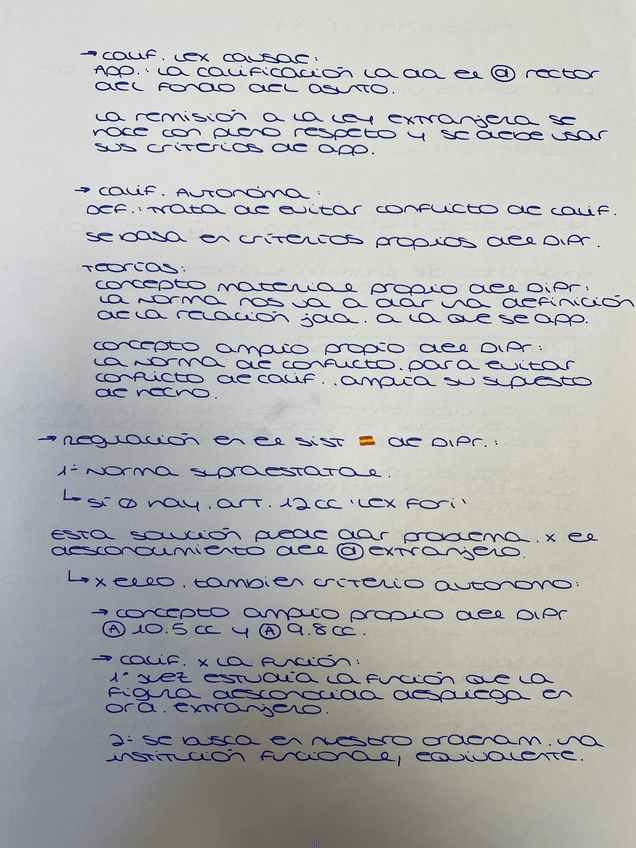 → calif. Lex causae:
App.: La calificación la da el @ rector
del fondo del asunto.
La remisión a la Ley extranjera se
hace con pleno respeto y se debe usar
sus criterios de app.
→ calif. Autonóma:
Def.: Trata de evitar conflicto de calif.
se basa en criterios propios del DIPr.
Teorías:
concepto material propio del DIPr:
La norma nos va a dar una definición
de la relación jda. a la que se app.
concepto amplio propio del DIPr:
La norma de conflicto, para evitar
conflicto de calif., amplia su supuesto
de hecho.
→ Regulación en el sist 🇪🇸 de DIPr.:
1º Norma supraestatal.
↳ si Ø hay, art. 12 cc 'Lex Fori'
Esta solución puede dar problema x el
desconocimiento del @ extranjero.
↳ x ello, tambien criterio autonomo:
→ concepto amplio propio del DIPr
Ⓐ 10.5 cc y Ⓐ 9.8 cc.
→ calif. x la función:
1º Juez estudia la función que la
figura desconocida despliega en
ord. extranjero.
2º se busca en nuestro ordenam. una
institución funcional, equivalente.